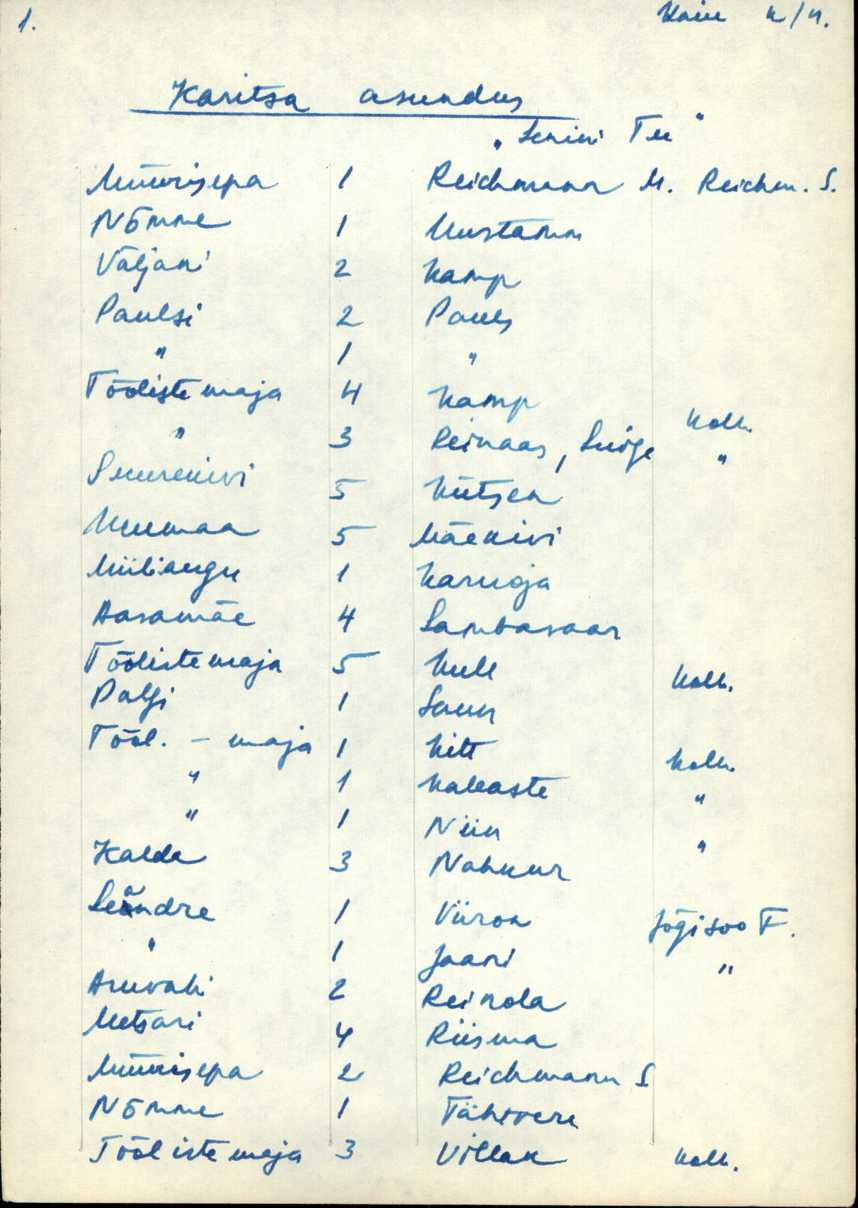 1. Kaiu k/n.
Karitsa asundus
"Lenini Tee"
Müürisepa 1 Reichmann M. Reichm. S.
Nõmme 1 Uustamm
Väljani 2 Kamp
Paulsi 2 Pauls
" 1 "
Tööliste maja 4 Kamp Kolh.
" 3 Reinaas, Luige "
Suurekivi 5 Kütsen
Uuemaa 5 Mäekivi
Miiliaugu 1 Karuoja
Aasamäe 4 Lambasaar
Tööliste maja 5 Kull Kolh.
Palji 1 Saun
Tööl. - maja 1 Kitt Kolh.
" 1 Kaleaste "
" 1 Niin "
Kalda 3 Nahkur
Leandre 1 Viiron Jõgisoo F.
" 1 Jaani "
Aruvahi 2 Reinola
Metsari 4 Riisma
Müürisepa 2 Reichmann S
Nõmme 1 Tähtvere
Tööliste maja 3 Villak Kolh.